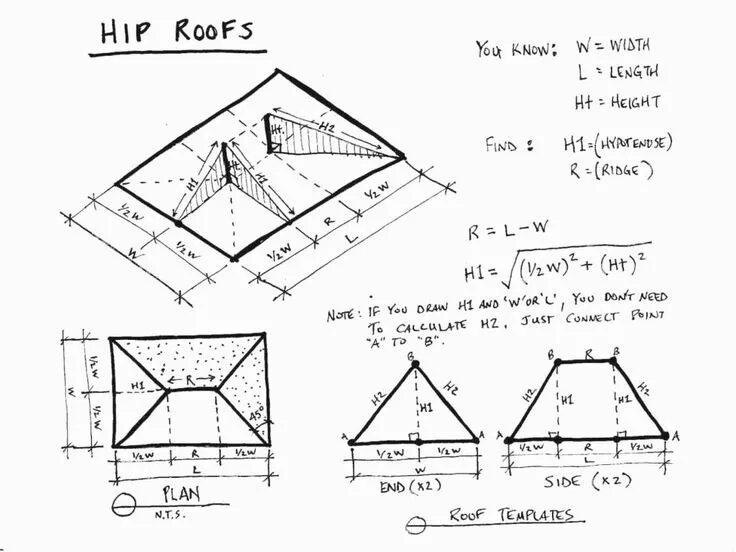 HIP ROOFS
YOU KNOW: W = WIDTH
L = LENGTH
Ht = HEIGHT
FIND: H1 = (HYPOTENUSE)
R = (RIDGE)
R = L - W
H1 = √(1/2W)² + (Ht)²
NOTE: IF YOU DRAW H1 AND 'W' OR 'L', YOU DON'T NEED
TO CALCULATE H2, JUST CONNECT POINT
"A" TO "B".
Ht.
H2
H1
Ht.
H1
1/2W
1/2W
W
1/2W
R
1/2W
L
1/2W
1/2W
W
H1
R
45°
1/2W
R
1/2W
L
PLAN
N.T.S.
B
H2
H2
H1
A
A
1/2W
1/2W
W
END (x2)
B
R
B
H2
H1
H1
H2
A
A
1/2W
R
1/2W
L
SIDE (x2)
ROOF TEMPLATES